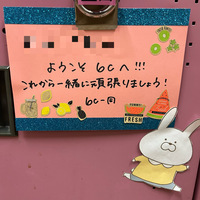 ようこそ 6Cへ!!!
これから一緒に頑張りましょう!
6C一同
FRESH